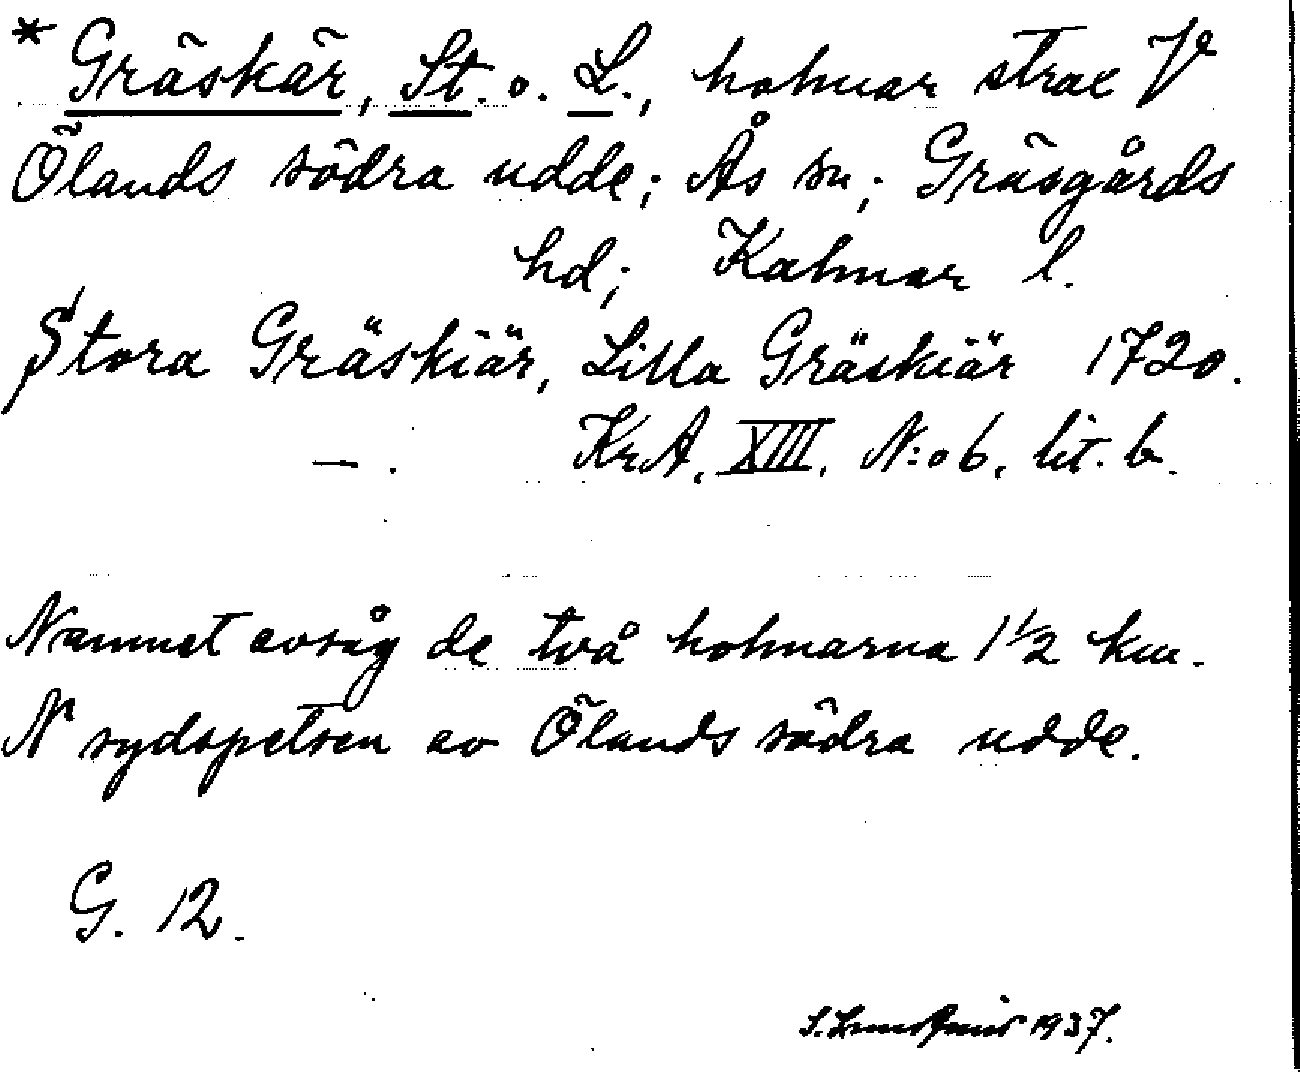 * Gräskär, St. o. L., holmar strax V
Ölands södra udde; Ås sn; Gräsgårds
hd; Kalmar l.
Stora Gräskiär, Lilla Gräskiär 1720.
— . KrA, XIII, N:o 6, lit. b.
Namnet avsåg de två holmarna 1 1/2 km.
N sydspetsen av Ölands södra udde.
G. 12.
1937.